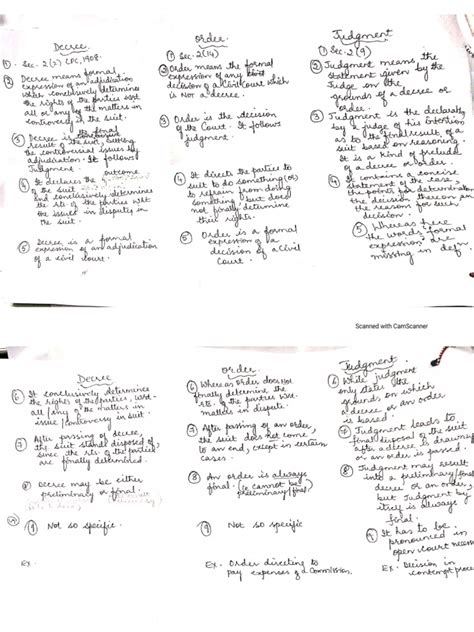 Decree
① Sec. 2(2) CPC, 1908.
② Decree means formal
expression of an adjudication
which conclusively determines
the rights of the parties
all or any of the matters in
controversy in the suit.
③ Decree is the final
result of the suit, settling
the controversial issues by
adjudication. It follows
Judgment.
④ It declares the outcome
of the suit
and conclusively determines
the rts of the parties wrt
the issues in dispute in
the suit.
⑤ Decree is a formal
expression of an adjudication
of a civil court.
Order
① Sec. 2(14)
② Order means the formal
expression of any
decision of a Civil Court which
is not a decree.
③ Order is the decision
of the Court. It follows
judgment.
④ It directs the parties to
suit to do something (or)
to refrain from doing
something but does
not finally determine
their rights.
⑤ Order is a formal
expression of a
decision of a Civil
Court.
Judgment
① Sec. 2(9)
② Judgment means, the
statement given by the
Judge on the
grounds of a decree or
order.
③ Judgment is the declaration
by a judge of his intention
as to the final result of a
suit based on reasoning.
It is a kind of prelude
of a decree or order.
④ It contains a concise
statement of the
the points for determination
the decision thereon and
the reasons for such
decision.
⑤ Whereas here
the words "formal
expression" are
missing in defn.
Scanned with CamScanner
Decree
⑥ It conclusively determines
the rights of the parties, wrt
all/any of the matters in
issue/controversy in suit
⑦ After passing of decree,
the suit stands disposed of,
since the rts. of the parties
are finally determined.
⑧ Decree may be either
preliminary or final.
⑨ Not so specific.
Ex-
Order
⑥ Whereas order does not
finally determine the
rts. of the parties wrt
matters in dispute.
⑦ After passing of an order,
the suit does not come
to an end, except in certain
cases.
⑧ An order is always
final. (a cannot be
preliminary/final)
⑨ Not so specific
Ex- Order directing to
pay expenses of a Commission.
Judgment
⑥ While judgment
only states the
grounds on which
a decree or an order
is based.
⑦ Judgment leads to
final disposal of the suit
after a decree is drawn
or an order is passed.
⑧ Judgment may result
into a preliminary/final
decree or an order,
but Judgment by
itself is always
final.
⑨ It has to be
pronounced in
open court
Ex- Decision in
contempt